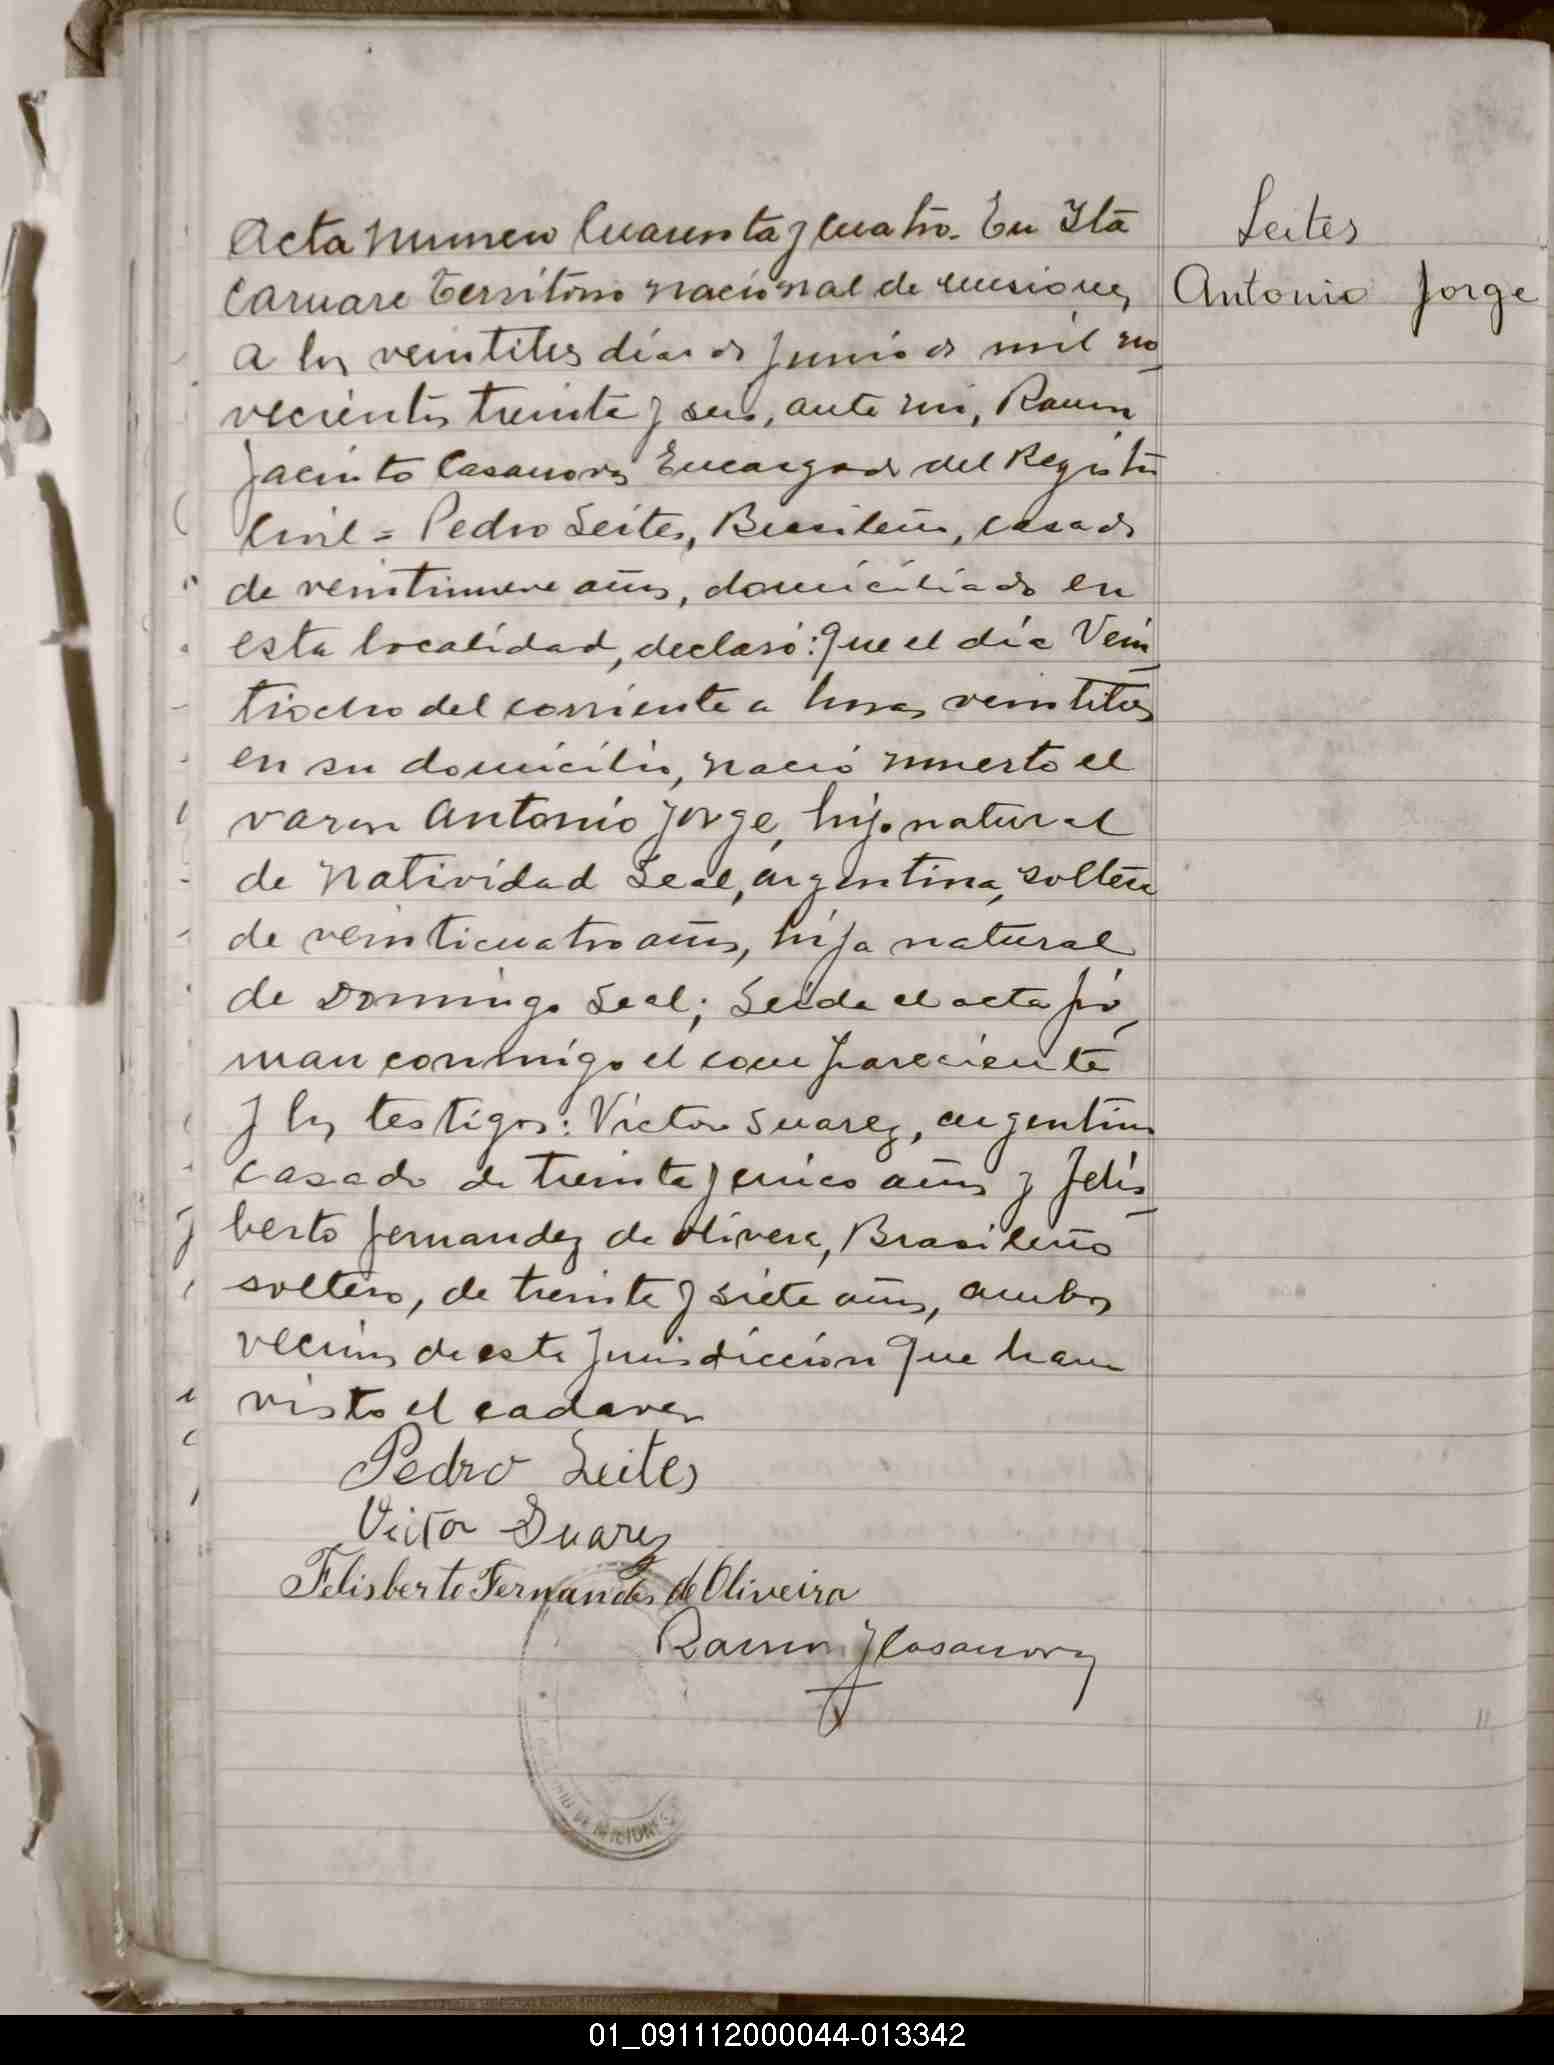 Acta numero Cuarenta y cuatro. En Ita
Caruare Territorio nacional de misiones,
a los veintitres dias de Junio de mil no
vecientos treinta y seis, ante mi, Ramon
Jacinto Casanova Encargado del Registro
Civil = Pedro Leites, Brasileño, casado
de veintinueve años, domiciliado en
esta localidad, declaró: Que el día Vein
tiocho del corriente a horas veintitres
en su domicilio, nació muerto el
varon Antonio Jorge, hijo natural
de Natividad Leal, argentina, soltera
de veinticuatro años, hija natural
de Domingo Leal; Leida el acta fir
man conmigo el compareciente
y los testigos: Victor Suarez, argentino
casado de treinta y cinco años y Felis
berto Fernandez de Olivera, Brasileño
soltero, de treinta y siete años, ambos
vecinos de esta Jurisdiccion que han
visto el cadaver
Pedro Leites
Victor Suarez
Felisberto Fernandes de Oliveira
Ramon J Casanova
DE MISIONES
Leites
Antonio Jorge
01_091112000044-013342